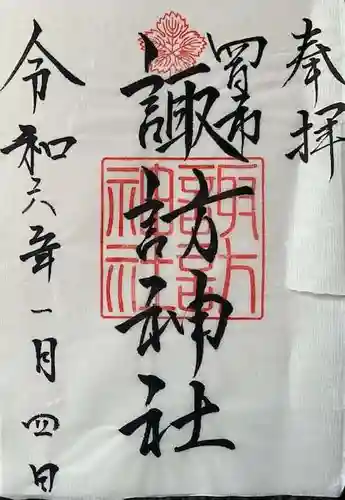 奉拝
四日市
諏訪神社
諏訪神社
令和六年一月四日